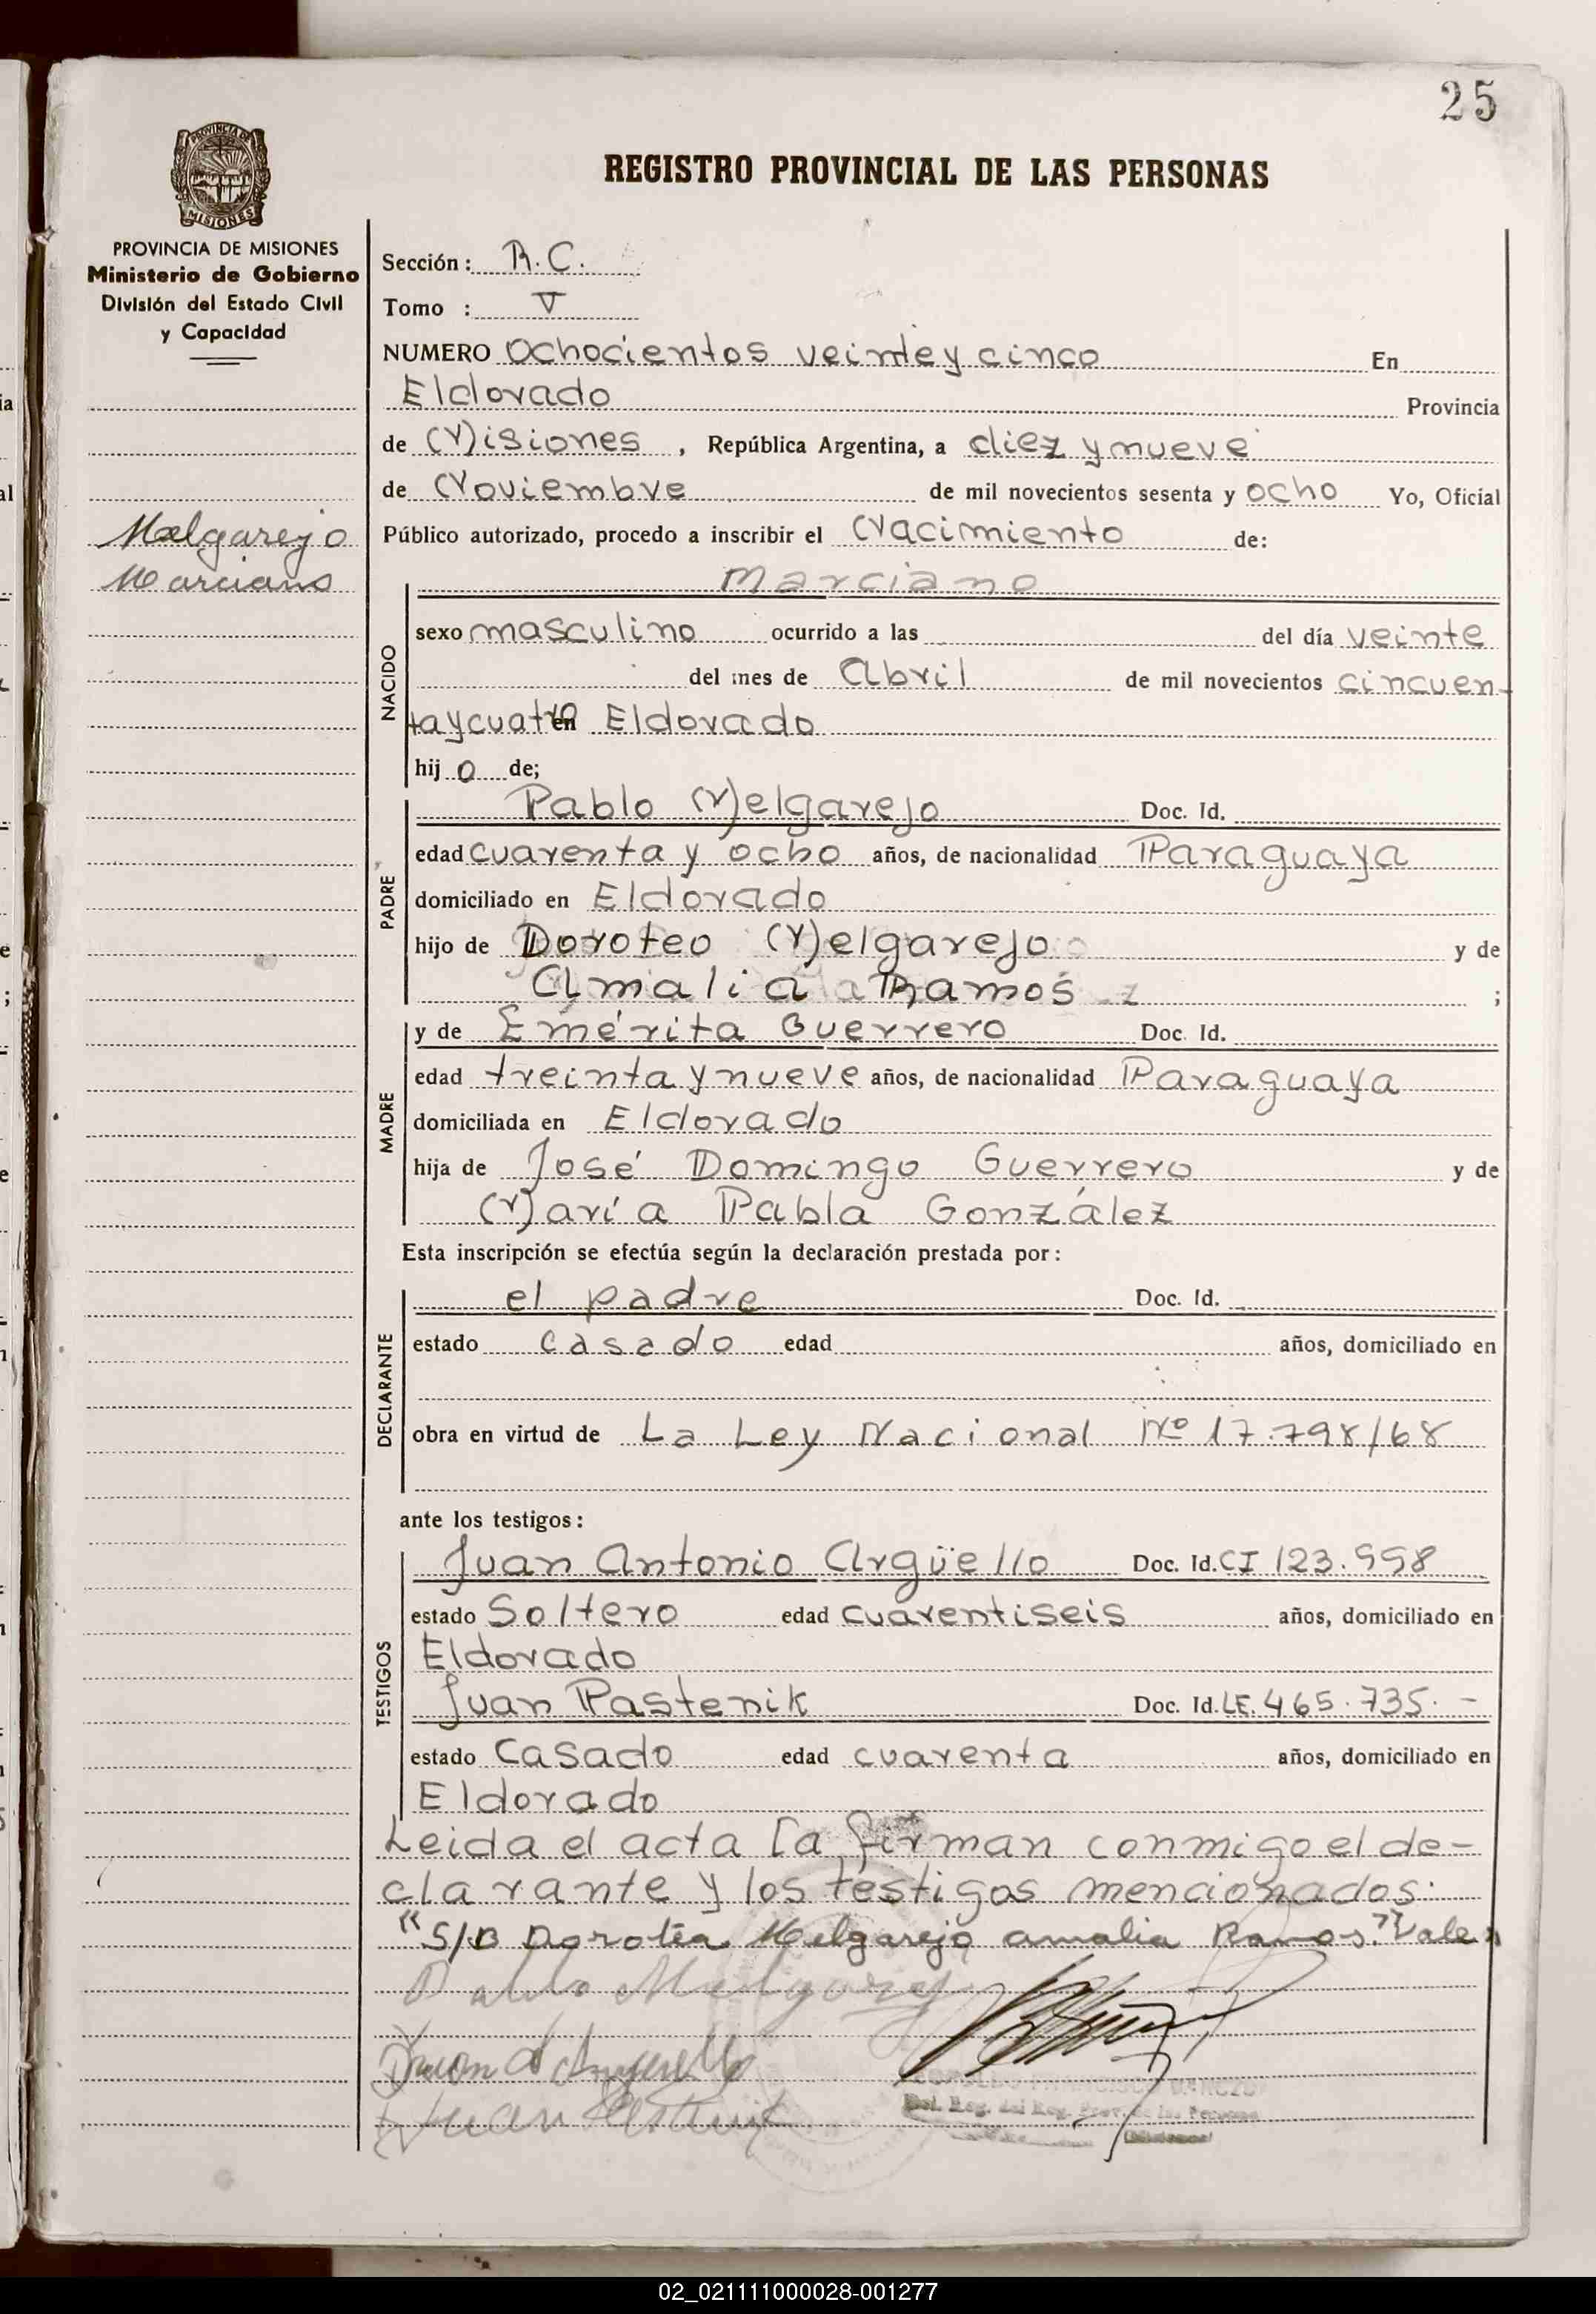 25
REGISTRO PROVINCIAL DE LAS PERSONAS
PROVINCIA DE
MISIONES
PROVINCIA DE MISIONES
Ministerio de Gobierno
División del Estado Civil
y Capacidad
Melgarejo
Marciano
Sección: R.C.
Tomo : V
NUMERO Ochocientos veinte y cinco En
Eldorado Provincia
de Misiones, República Argentina, a diez y nueve
de Noviembre de mil novecientos sesenta y ocho Yo, Oficial
Público autorizado, procedo a inscribir el Nacimiento de:
Marciano
NACIDO
sexo masculino ocurrido a las del día veinte
del mes de Abril de mil novecientos cincuen-
ta y cuatro en Eldorado
hijo de;
Pablo Melgarejo Doc. Id.
PADRE
edad cuarenta y ocho años, de nacionalidad Paraguaya
domiciliado en Eldorado
hijo de Doroteo Melgarejo y de
Amalia Ramos ;
y de Emérita Guerrero Doc. Id.
MADRE
edad treinta y nueve años, de nacionalidad Paraguaya
domiciliada en Eldorado
hija de José Domingo Guerrero y de
María Pabla González
Esta inscripción se efectúa según la declaración prestada por:
el padre Doc. Id.
DECLARANTE
estado casado edad años, domiciliado en
obra en virtud de La Ley Nacional Nº 17.798/68
ante los testigos:
Juan Antonio Argüello Doc. Id. CI 123.998
TESTIGOS
estado Soltero edad cuarentiseis años, domiciliado en
Eldorado
Juan Pastenik Doc. Id. LE. 465.735.-
estado Casado edad cuarenta años, domiciliado en
Eldorado
Leida el acta la firman conmigo el de-
clarante y los testigos mencionados.
"S/B Doroteo Melgarejo amalia Ramos." Vale
Pablo Melgarejo
Juan A Arguello
Juan Pastenik
02_021111000028-001277